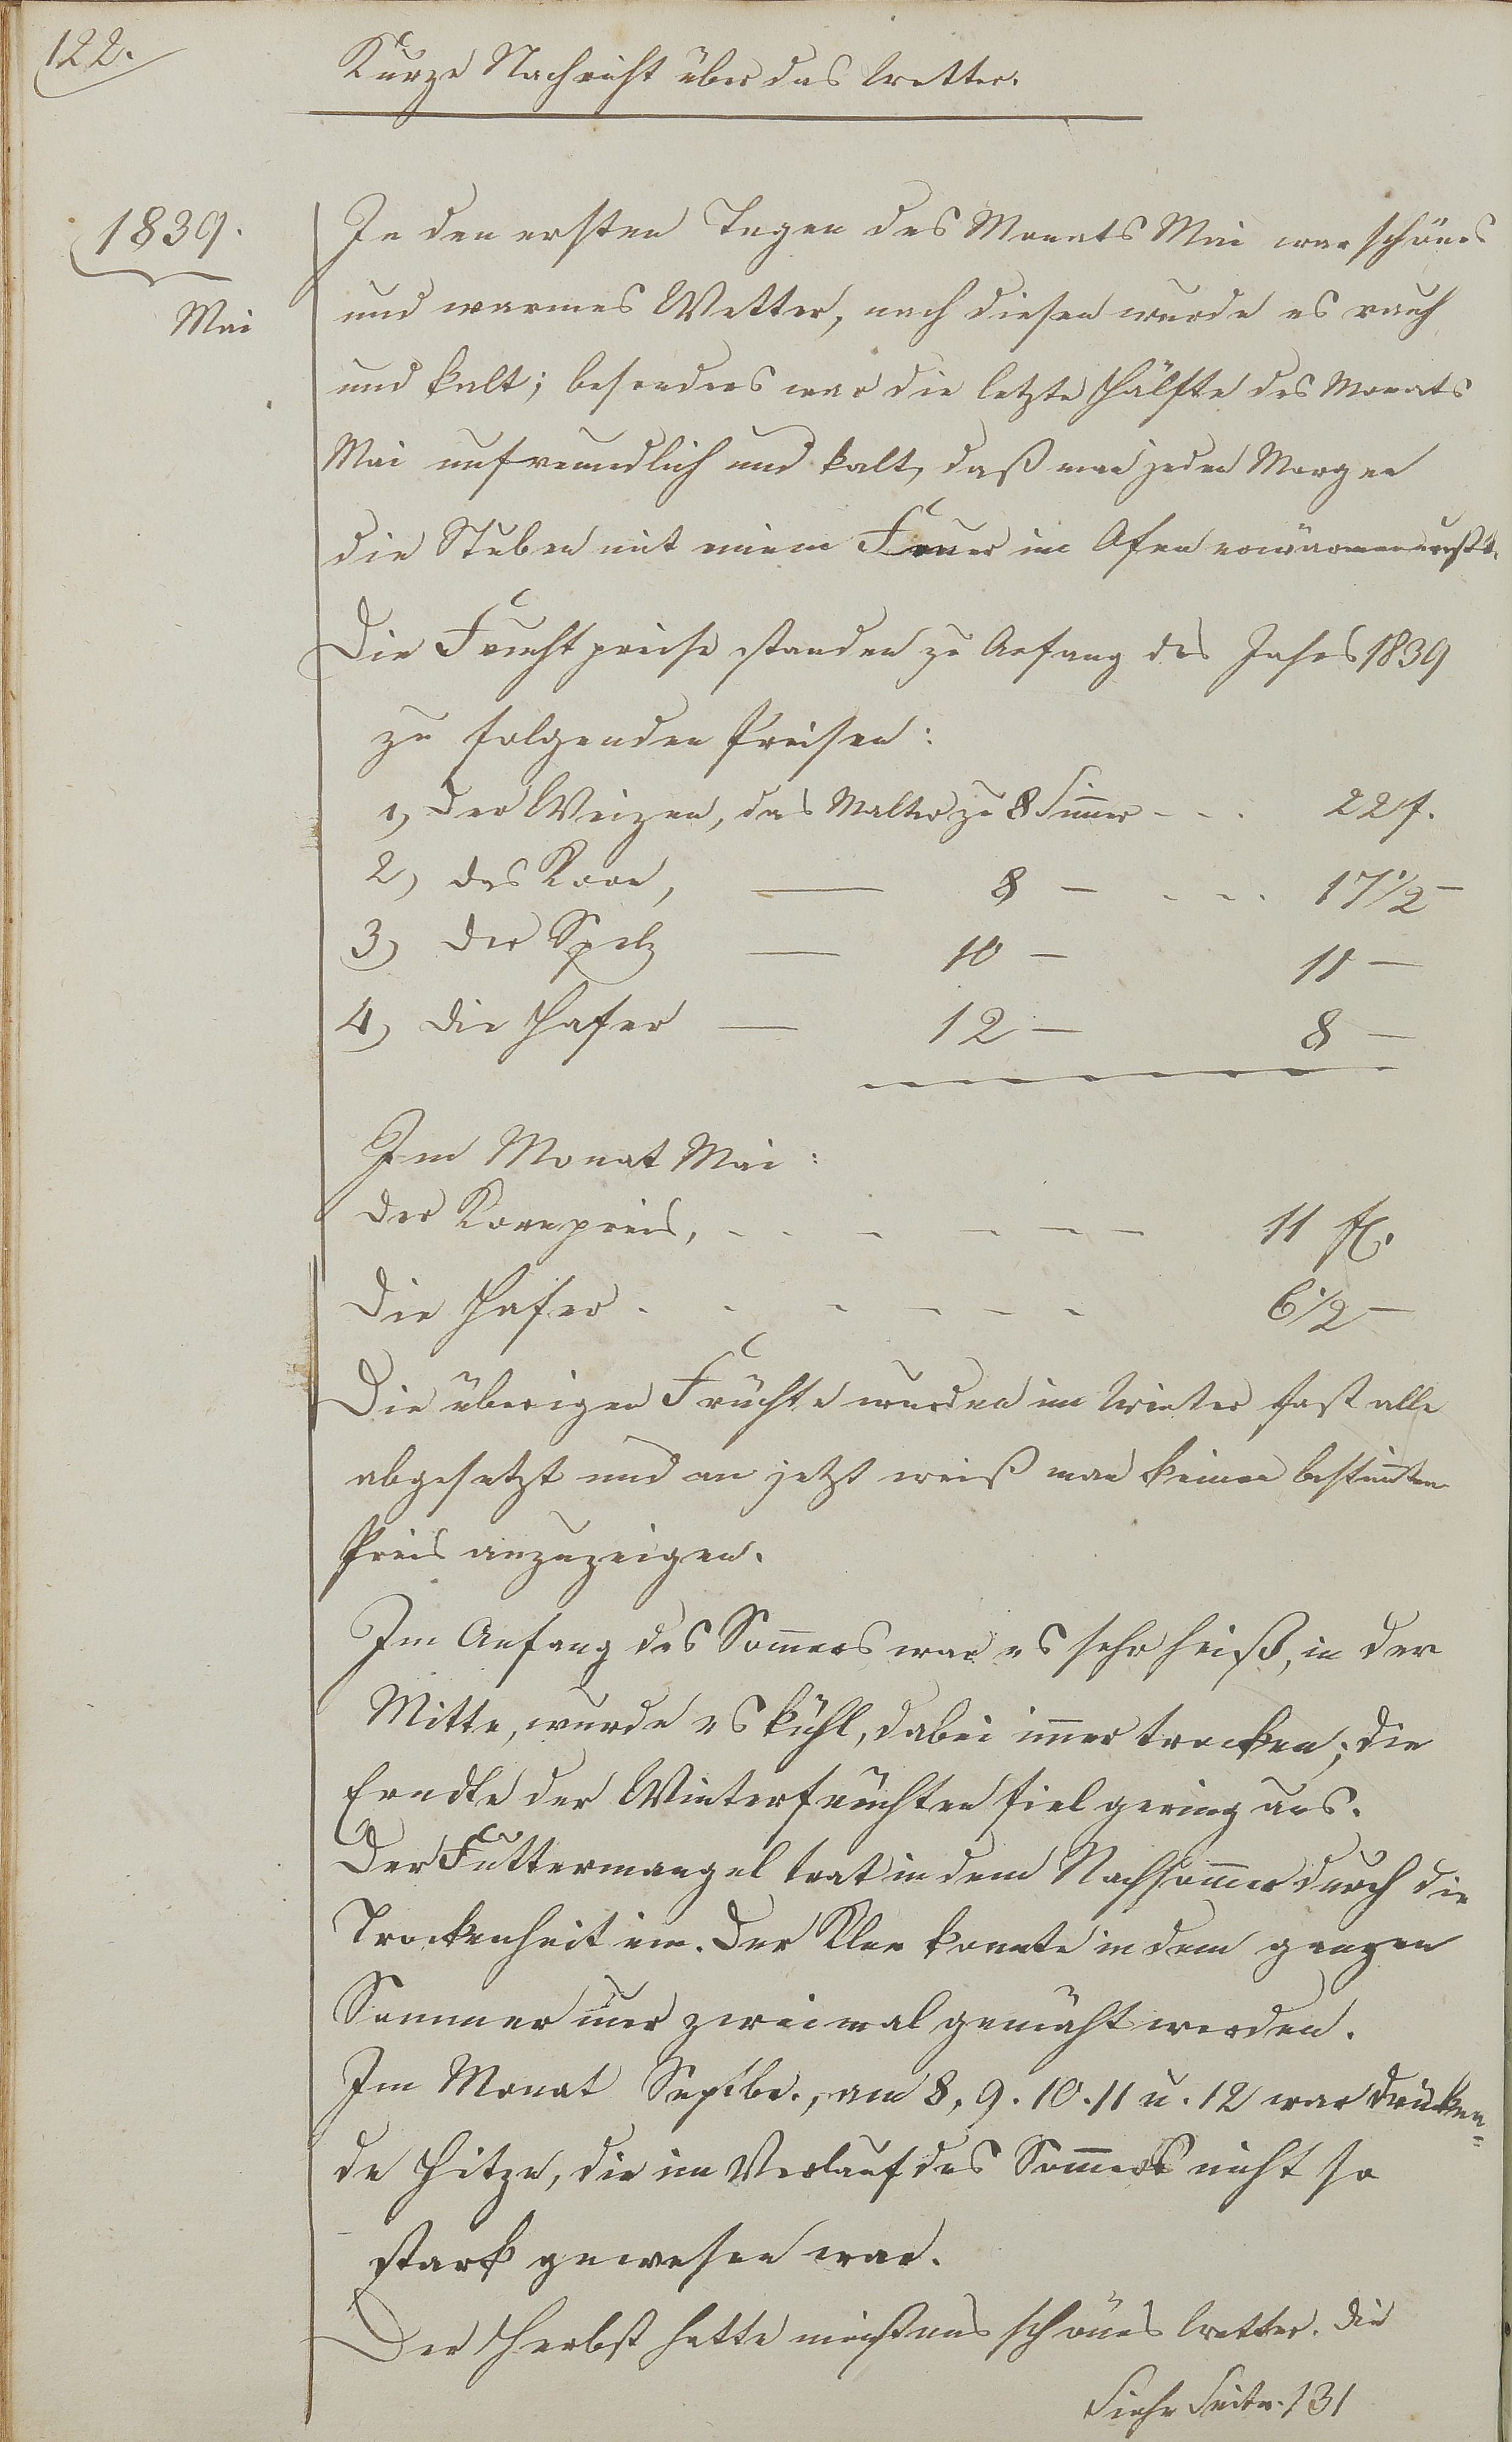 122.
Kurze Nachricht über das Wetter.
1839.
Mai
In den ersten Tagen des Monats Mai war schönes
und warmes Wetter, nach diesen wurde es rauh
und kalt; besonders war die letzte Hälfte des Monats
Mai unfreundlich und kalt, daß man jeden Morgen
die Stuben mit einem Feuer im Ofen erwärmen mußte.
Die Fruchtpreise standen zu Anfang des Jahres 1839
zu folgenden Preisen:
1, Der Weizen, das Malter zu 8 Simmer - - . 22 f.
2, das Korn, — 8 — - - . 17 1/2 —
3, der Spelz — 10 — 11 —
4, die Hafer — 12 — 8 —
Im Monat Mai:
der Kornpreis, - - - - - - 11 fl.
Die Hafer . - - - - - 6 1/2 —
Die überigen Früchte wurden im Winter fast alle
abgesetzt und an jetzt weiß man keinen bestim̅ten
Preis anzuzeigen.
Im Anfang des Som̅ers war es sehr heiß, in der
Mitte, wurde es kühl, dabei im̅er trocken; die
Erndte der Winterfrüchten fiel gering aus.
Der Futtermangel trat in dem Nachsom̅er durch die
Trockenheit ein. Der Klee konnte in dem ganzen
Sommer nur zweimal gemäht werden.
Im Monat Septbr., am 8, 9. 10. 11 u. 12 war drücken=
de Hitze, die im Verlauf des Som̅ers nicht so
stark gewesen war.
Der Herbst hatte meistens schönes Wetter. Die
Siehe Seite. 131